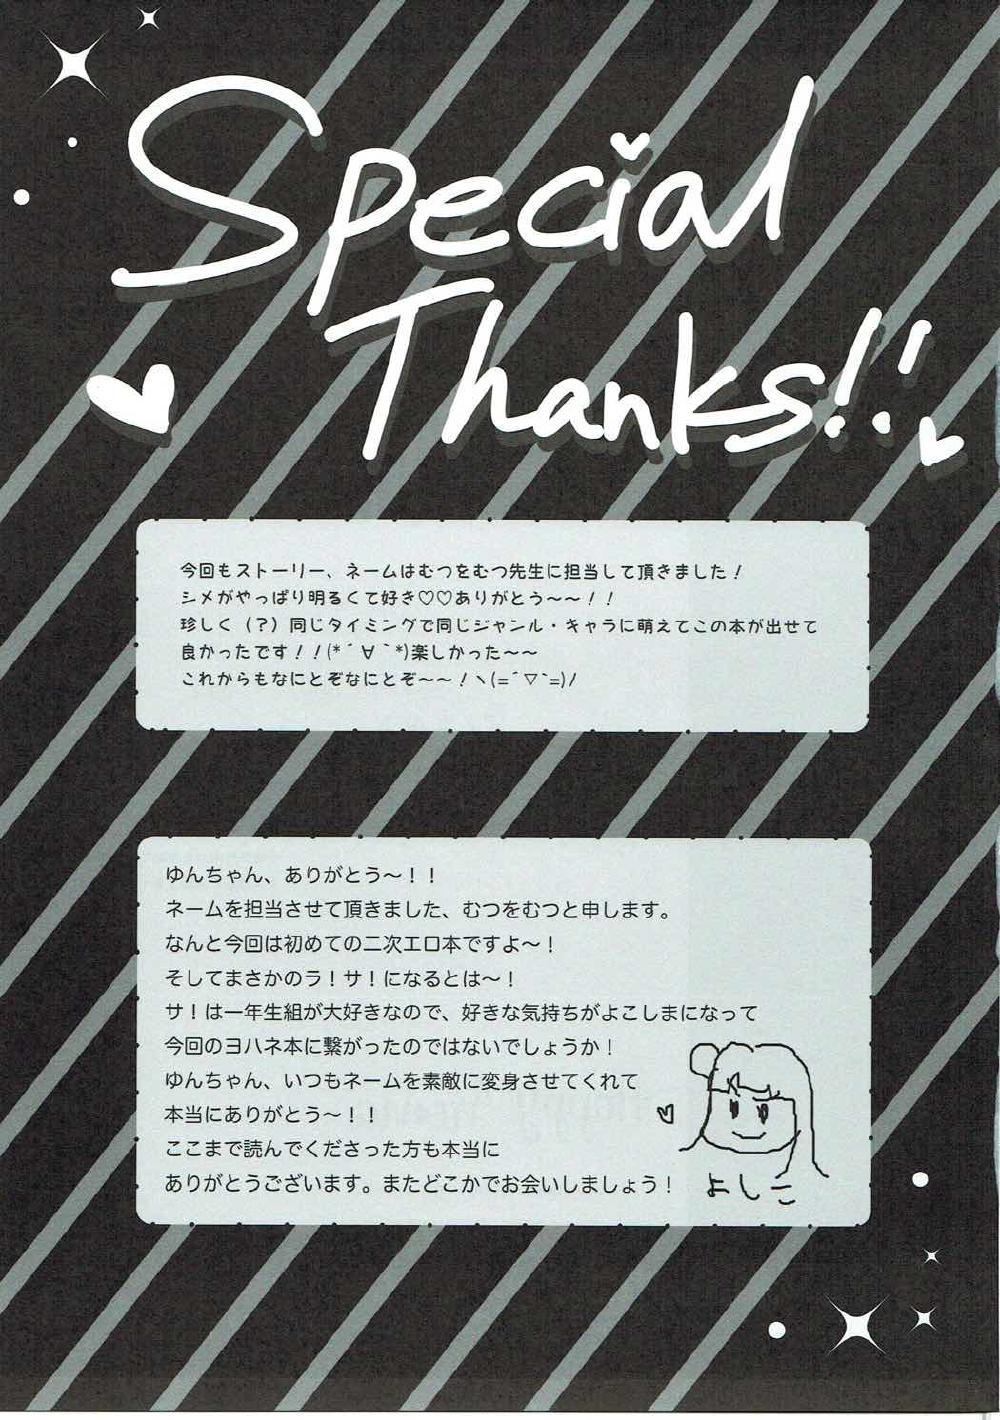 Special
Thanks!!
今回もストーリー、ネームはむつをむつ先生に担当して頂きました！
シメがやっぱり明るくて好き♡♡ありがとう～～！！
珍しく（？）同じタイミングで同じジャンル・キャラに萌えてこの本が出せて
良かったです！！(*´∀｀*)楽しかった～～
これからもなにとぞなにとぞ～～！ヽ(=´▽`=)ﾉ
ゆんちゃん、ありがとう～！！
ネームを担当させて頂きました、むつをむつと申します。
なんと今回は初めての二次エロ本ですよ～！
そしてまさかのラ！サ！になるとは～！
サ！は一年生組が大好きなので、好きな気持ちがよこしまになって
今回のヨハネ本に繋がったのではないでしょうか！
ゆんちゃん、いつもネームを素敵に変身させてくれて
本当にありがとう～！！
ここまで読んでくださった方も本当に
ありがとうございます。またどこかでお会いしましょう！
よしこ